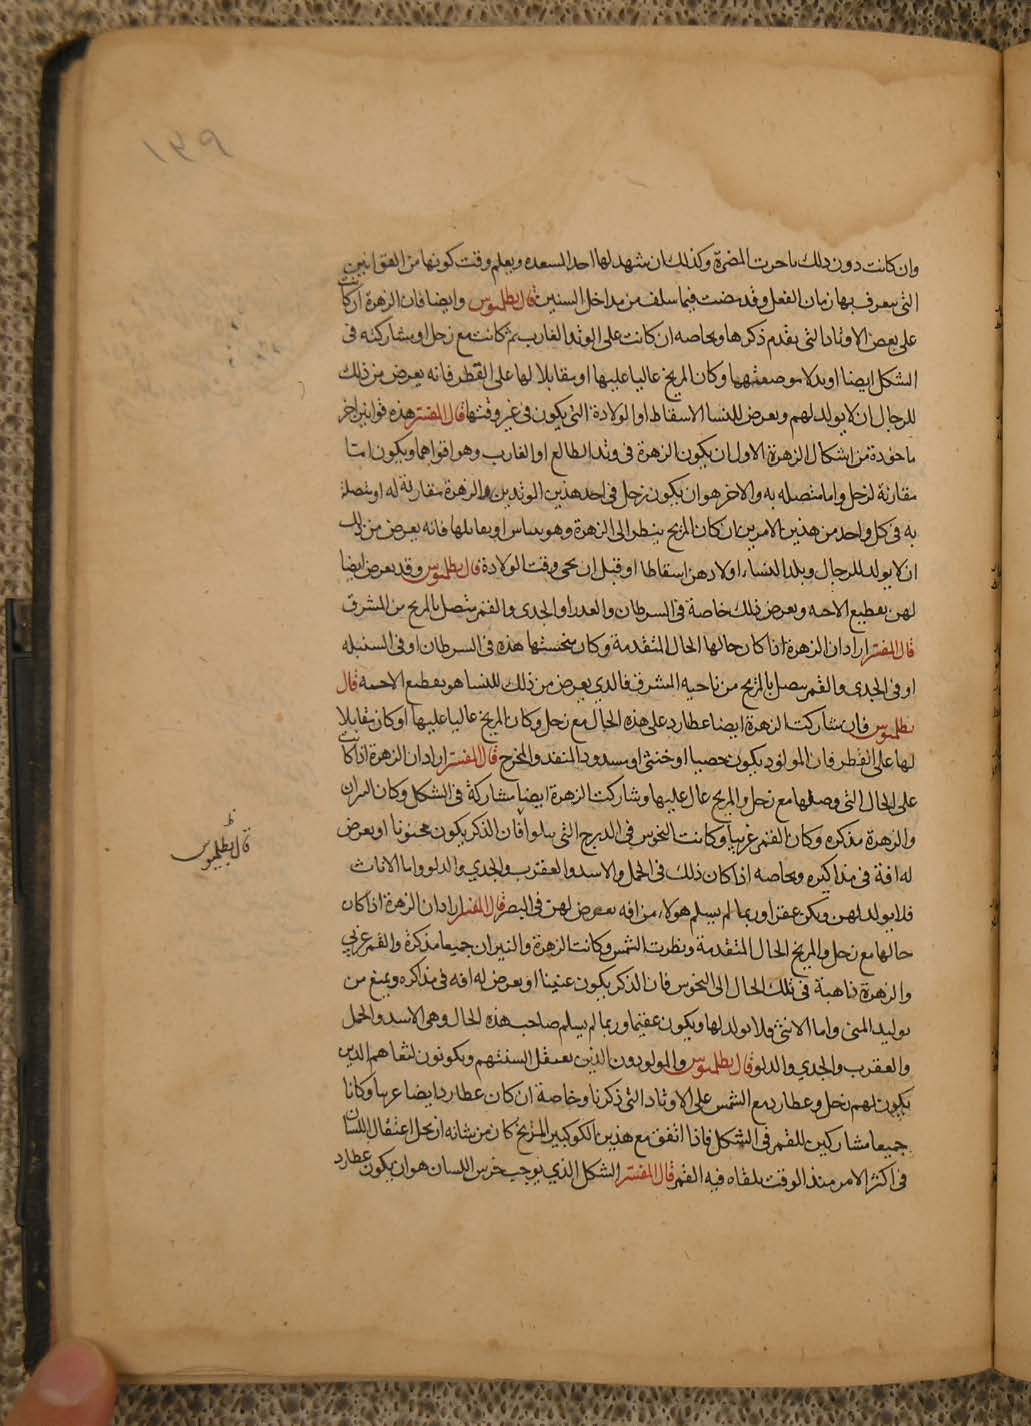 ١٣٩
وان كانت دون ذلك باحرت المضرة وكذلك ان شهد لها احد السعده ويعلم وقت كونها من القوانين
التى يعرف بها زمان الفعل وقد مضت فيما سلف من مداخل السنين قال بطلميوس وايضا فان الزهرة اذ كانت
على بعض الاوتاد التى تقدم ذكرها وبخاصه ان كانت على الوتد الغارب ثم كانت مع زحل او يشاركته فى
الشكل ايضا او بدلا موضعيهما وكان المريخ عاليا عليها او مقابلا لها على القطر فانه يعرض من ذلك
للرجال ان لا يولد لهم ويعرض للنسا الاسقاط او الولادة التى يكون فى غير وقتها قال المفسر هذه قوانين اخر
ماخوذة من اشكال الزهرة الاول ان يكون الزهرة فى وتد الطالع او الغارب وهو اقواهما ويكون اما
مقارنة لزحل واما متصله به والاخر هو ان يكون زحل فى احد هذين الوتدين والزهرة مقارنة له او متصلة
به فى كل واحد من هذين الامرين ان كان المريخ ينظر الى الزهرة وهو او يقابلها فانه يعرض من ذلك
ان لا يولد للرجال ويلد النساء اولادهن اسقاطا او قبل ان يجى وقت الولادة قال بطلميوس وقد يعرض ايضا
لهن تقطيع الاجنه ويعرض ذلك خاصة فى السرطان والعذرا والجدى والقمر متصل بالمريخ من المشرق
قال المفسر اراد ان الزهرة اذا كان حالها الحال المتقدمة وكان منحستها هذه فى السرطان او فى السنبله
او فى الجدى والقمر يتصل بالمريخ من ناحيه المشرق فالذى يعرض من ذلك للنسا هو تقطيع الاجنه قال
بطلميوس فان شاركت الزهرة ايضا عطارد على هذه الحال مع زحل وكان المريخ عاليا عليها او كان مقابلا
لها على القطر فان المولود يكون خصيا او خنثى او مسدود المنفذ والمخرج قال المفسر اراد ان الزهرة اذا كانت
على الحال التى وصفها مع زحل والمريخ عال عليها وشاركت الزهرة ايضا مشاركة فى الشكل وكان النيران
والزهرة مذكره وكان القمر غربيا وكانت النحوس فى الدرج التى يتلوا فان الذكر يكون مجنونا او يعرض
له افة فى مذاكيره وبخاصه اذا كان ذلك فى الحمل والاسد والعقرب والجدي والدلو واما الاناث
فلا يولد لهن ويكن عقرا وربما لم يسلم هولاء من افه يعرض لهن فى البصر قال المفسر اراد ان الزهرة اذا كان
حالها مع زحل والمريخ الحال المتقدمة ونظرت الشمس وكانت الزهرة والنيران جميعا مذكرة والقمر غربي
والزهرة ذاهبة فى تلك الحال الى النحوس فان الذكر يكون عنينا او يعرض له افه فى مذاكره ويمنع من
توليد المنى واما الانثى فلا يولد لها ويكون عقيما وربما لم يسلم صاحب هذه الحال وهى الاسد والحمل
والعقرب والجدي والدلو قال بطلميوس والمولودون الذين يعتقل السنتهم ويكونون لثغا هم الذين
يكون لهم زحل وعطارد مع الشمس على الاوتاد التى ذكرنا وخاصة ان كان عطارد ايضا غربيا وكانا
جميعا مشاركين للقمر فى الشكل فاذا اتفق مع هذين الكوكبين المريخ كان من شانه ان يحل اعتقال اللسان
فى اكثر الامر منذ الوقت يلقاه فيه القمر قال المفسر الشكل الذي يوجب خرس اللسان هو ان يكون عطارد
ظ
قال بطلميوس